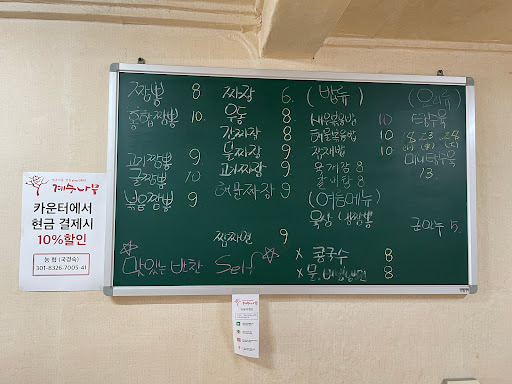 짬뽕 8
홍합짬뽕 10
고기짬뽕 9
굴짬뽕 10
볶음짬뽕 9
짜장 6.
우동 8
간짜장 8.
불짜장 9
고기짜장 9
9
짬짜면 9
(밥류)
새우볶음밥 10
해물볶음밥 10
잡채밥 10
육개장 8
갈비탕 8
(여름메뉴)
육상 냉짬뽕
x 콩국수 8
x 물, 비빔냉면 8
(요리류)
탕수육
18 23 28
(소) (중) (대)
미니탕수육
13
군만두 5.
☆맛있는 반찬 Self☆
계수나무
카운터에서
현금 결제시
10%할인
농협 (국경숙)
301-8326-7005-41